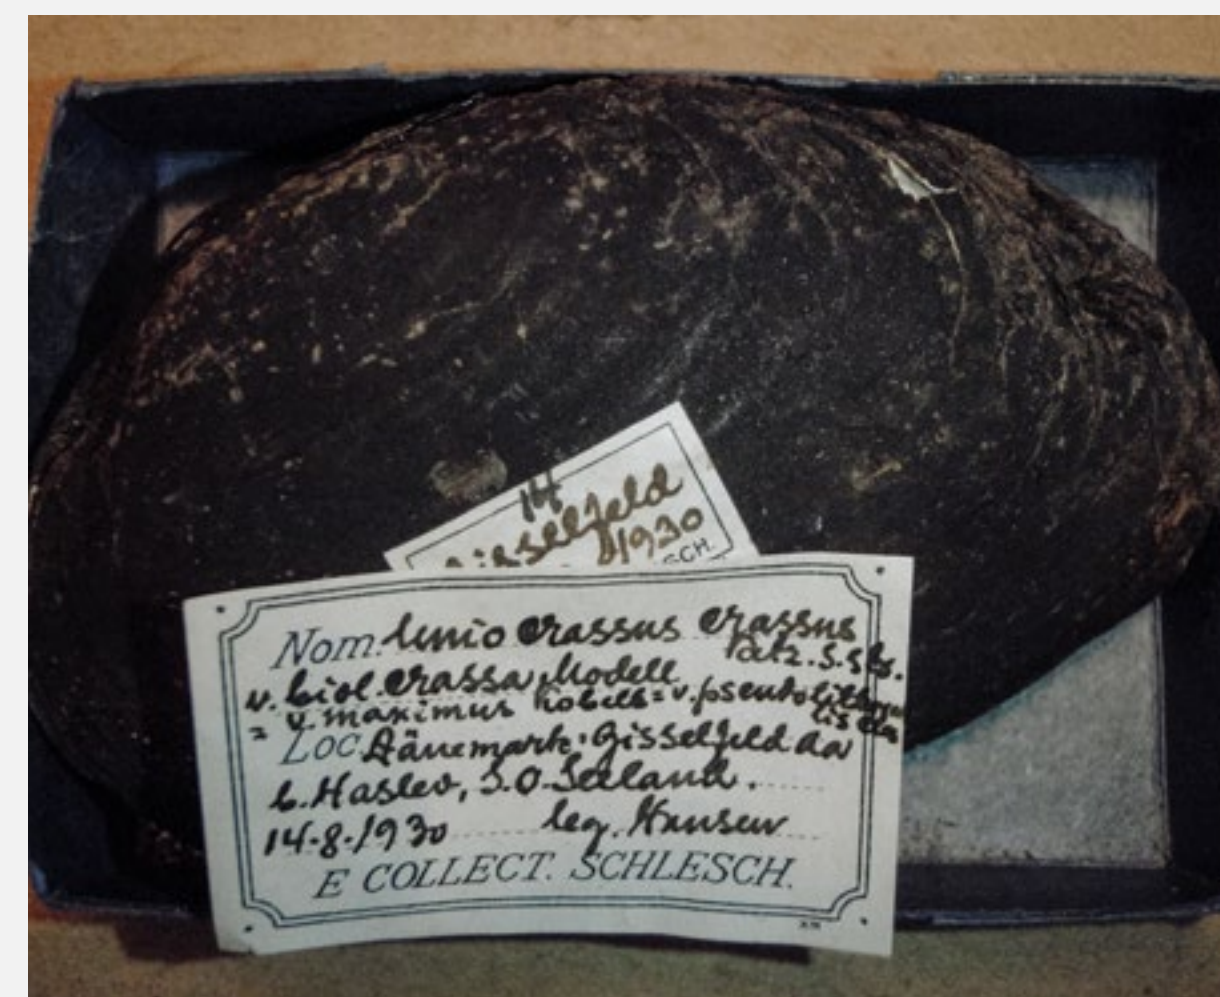 14
Gisselfeld
8/1930
SCH.
Nom. Unio crassus crassus
Retz. s. str.
v. biol. crassa Modell
= v. maximus Kobelt = v. pseudolitoralis
Loc. Dänemark: Gisselfeld Aa
b. Haslev, S.O. Seeland.
14-8-1930 leg. Hansen
E COLLECT. SCHLESCH.